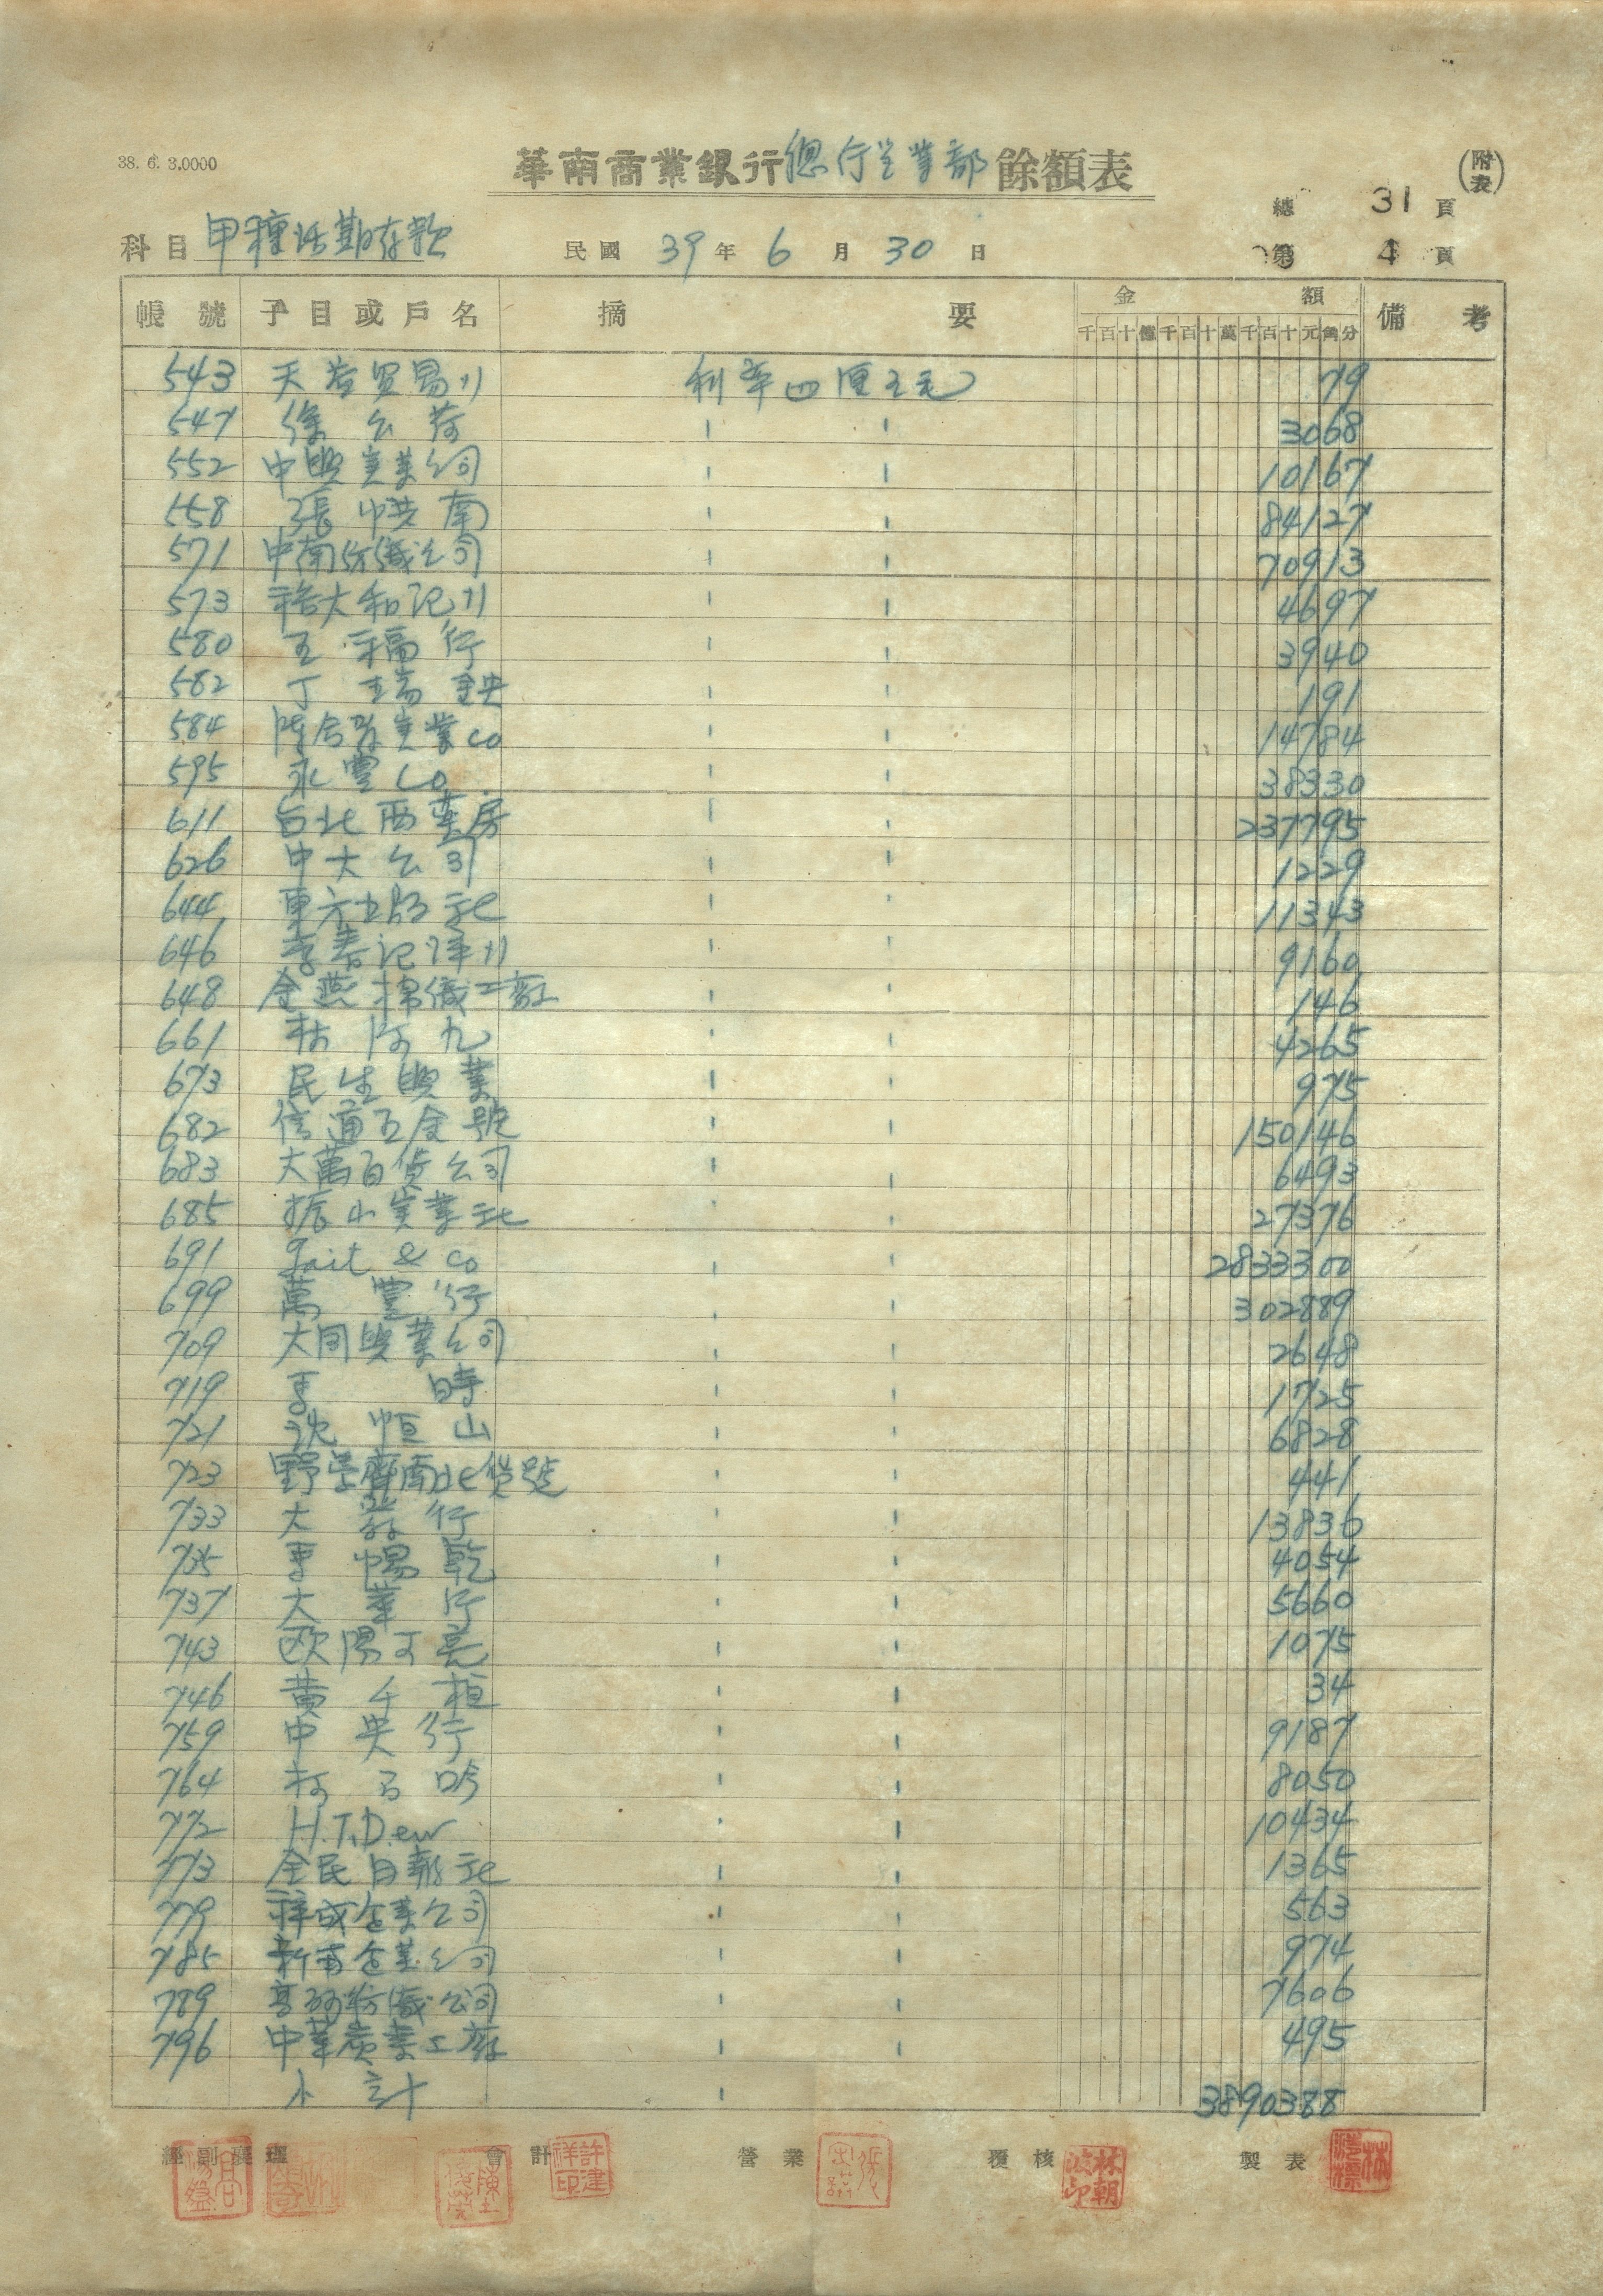 38. 6. 3.0000
華南商業銀行總行營業部餘額表
(附表)
總 31 頁
科目 甲種活期存款 民國 39 年 6 月 30 日 第 4 頁
帳號 子目或戶名 摘要 金額 備考
千百十億千百十萬千百十元角分
543 天益貿易 利率四厘五毛 79
547 徐公荷 3068
552 中興实業公司 10167
558 張洪南 84127
571 中南紡織公司 70913
573 大和記 4697
580 五福行 3940
582 丁瑞鉠 191
584 実業co 14784
595 永豐Co. 38330
611 台北西藥房 237795
626 中大公司 1229
644 東方出版社 11343
646 李春記 9160
648 金燕棉織工廠 146
661 林阿九 4265
673 民生興業 975
682 信通五金號 150146
683 大萬百貨公司 6493
685 振山実業社 27376
691 Gait & Co 2833300
699 萬豐行 302889
709 大同興業公司 2648
719 李時 1725
721 沈恒山 6828
723 野學齋南北貨號 441
733 大行 13836
735 李惕乾 4054
737 大華行 5660
743 欧陽可亮 1075
746 黃千桓 34
759 中央行 9187
764 柯百鳴 8050
772 H.T.Dew 10434
773 全民日報社 1365
779 祥成企業公司 563
785 新南企業公司 974
789 紡織公司 7606
796 中華炭業工廠 495
小計 3890388
經副襄理 會計 營業 覆核 製表
許建祥印
林朝波印